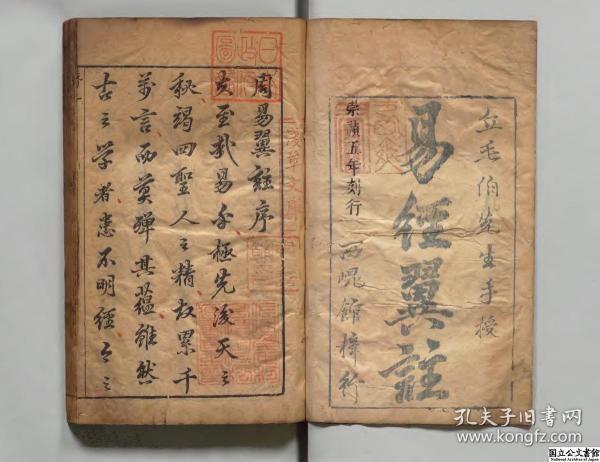 丘毛伯先生手授
易經翼註
崇禎五年刻行
西爽館梓行
周易翼註序
大至哉易爻極先後天之
秘竭四聖人之精故累千
萬言而莫殫其蘊雖然
古之學者患不明經今之
序一
孔夫子旧书网
www.kongfz.com
国立公文書館
National Archives of Japan